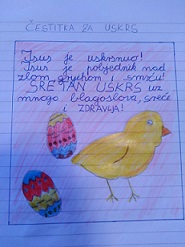 ČESTITKA ZA USKRS
Isus je uskrsnuo!
Isus je pobjednik nad
zlom, grijehom i smrću!
SRETAN USKRS uz
mnogo blagoslova, sreće
i ZDRAVLJA!